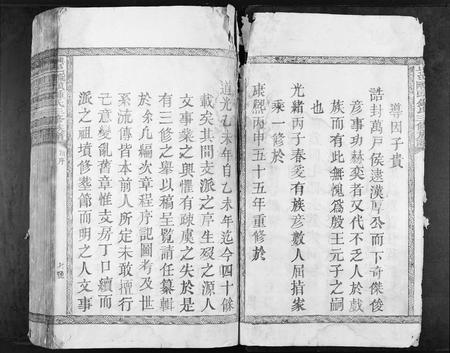 導因子貴
誥封萬戶侯逮漢
公而下奇傑俊
彥事功赫奕者又代不乏人於戲
族而有此無愧爲殷王元子之嗣
也
光緒丙子春爰有族彥數人屈指家
乘一修於
康熙丙申五十五年重修於
道光乙未年自乙未年迄今四十餘
載矣其間支派之序生歿之源人
文事業之興懼有疎虞之失於是
有三修之舉以稿呈覧請任纂輯
於余凡編次章程序記圖考及世
系流傳皆本前人所定未敢擅行
己意變亂舊章惟支房丁口續而
派之祖墳修塟節而明之人文事